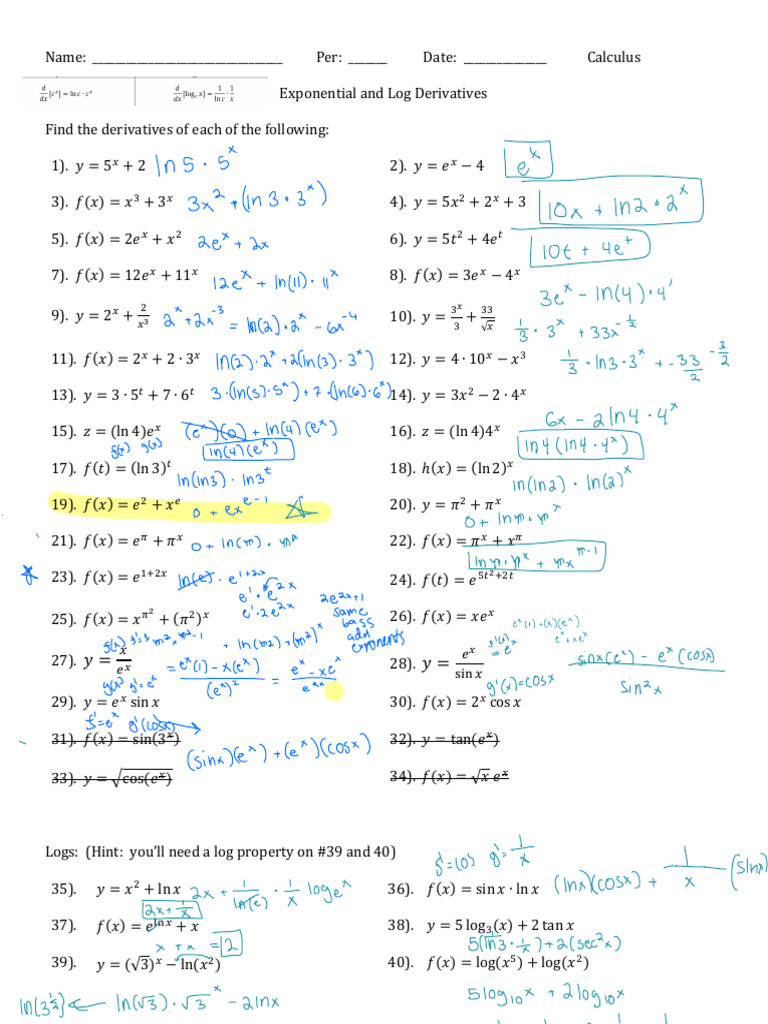 Name: ______________________________ Per: ______ Date: _____________ Calculus
d/dx [cˣ] = ln c · cˣ d/dx [log_c x] = 1/ln c · 1/x Exponential and Log Derivatives
Find the derivatives of each of the following:
1). y = 5ˣ + 2 ln 5 · 5ˣ 2). y = eˣ − 4 eˣ
3). f(x) = x³ + 3ˣ 3x² + (ln 3 · 3ˣ) 4). y = 5x² + 2ˣ + 3 10x + ln2 · 2ˣ
5). f(x) = 2eˣ + x² 2eˣ + 2x 6). y = 5t² + 4eᵗ 10t + 4eᵗ
7). f(x) = 12eˣ + 11ˣ 12eˣ + ln(11) · 11ˣ 8). f(x) = 3eˣ − 4ˣ 3eˣ − ln(4) · 4'
9). y = 2ˣ + 2/x³ 2ˣ + 2x⁻³ = ln(2) · 2ˣ − 6x⁻⁴ 10). y = 3ˣ/3 + 33/√x 1/3 · 3ˣ + 33x^(−1/2)
11). f(x) = 2ˣ + 2 · 3ˣ ln(2) · 2ˣ + 2(ln(3) · 3ˣ) 12). y = 4 · 10ˣ − x³ 1/3 · ln3 · 3ˣ + −33/2 ^(−3/2)
13). y = 3 · 5ᵗ + 7 · 6ᵗ 3 · (ln(5) · 5ˣ) + 7 · (ln(6) · 6ˣ) 14). y = 3x² − 2 · 4ˣ
6x − 2ln4 · 4ˣ
15). z = (ln 4)eˣ (eˣ)(0) + ln(4)(eˣ) 16). z = (ln 4)4ˣ ln4(ln4 · 4ˣ)
f(x) g(x) ln(4)(eˣ)
17). f(t) = (ln 3)ᵗ ln(ln3) · ln3ᵗ 18). h(x) = (ln 2)ˣ ln(ln2) · ln(2)ˣ
19). f(x) = e² + xᵉ 0 + ex^(e−1) 20). y = π² + πˣ
0 + lnπ · πˣ
21). f(x) = e^π + πˣ 0 + ln(π) · πˣ 22). f(x) = πˣ + x^π
lnπ · πˣ + πx^(π−1)
23). f(x) = e^(1+2x) ln(e) · e^(1+2x) 24). f(t) = e^(5t²+2t)
e' · e^(2x)
e' · 2e^(2x) 2e^(2x+1)
same
bass
add
exponents
25). f(x) = x^(π²) + (π²)ˣ 26). f(x) = xeˣ eˣ(1) + (x)(eˣ)
eˣ + xeˣ
+ ln(π²) + (π²)ˣ
27). y = x/eˣ = eˣ(1) − x(eˣ) / (eˣ)² = eˣ − xeˣ / e^(2x) 28). y = eˣ/sin x sinx(eˣ) − eˣ(cosx) / sin²x
g(x) g' = eˣ g'(x) = cosx
29). y = eˣ sin x 30). f(x) = 2ˣ cos x
f' = eˣ g'(cosx)
31). f(x) = sin(3ˣ) 32). y = tan(eˣ)
(sinx)(eˣ) + (eˣ)(cosx)
33). y = √cos(eˣ) 34). f(x) = √x eˣ
Logs: (Hint: you'll need a log property on #39 and 40)
f' = cos g' = 1/x
35). y = x² + ln x 2x + 1/ln(e) · 1/x logeˣ 36). f(x) = sin x · ln x (lnx)(cosx) + 1/x (sinx)
2x + 1/x
37). f(x) = e^(ln x) + x 38). y = 5 log₃(x) + 2 tan x
x + x = 2 5(ln3 · 1/x) + 2(sec²x)
39). y = (√3)ˣ − ln(x²) 40). f(x) = log(x⁵) + log(x²)
ln(3^(1/2)) ← ln(√3) · √3ˣ − 2lnx 5log₁₀x + 2log₁₀x